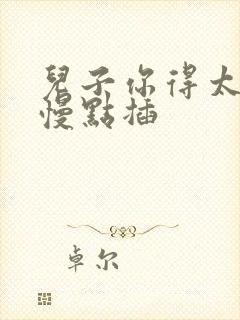 兒子你得太
慢點插
卓尔